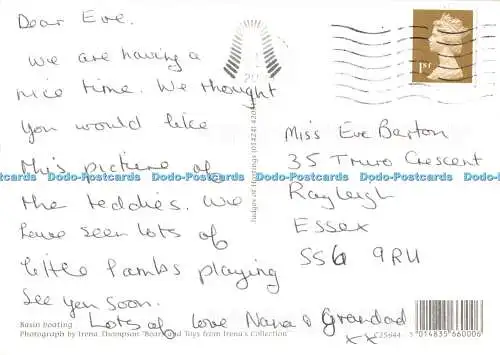 Dear Eve.
We are having a
nice time. We thought
you would like
this picture of
the teddies. We
have seen lots of
little lambs playing
See you soon.
Lots of love Nana & Grandad
xx
1ST
Miss Eve Barton
35 Truro Crescent
Rayleigh
Essex
SS6 9RU
Judges of Hastings (01424) 420
Basin Boating
Photograph by Irena Thompson "Bears and Toys from Irena's Collection"
C25644
5 014835 660006
Dodo-Postcards Dodo-Postcards Dodo-Postcards Dodo-Postcards Dodo-Postcards